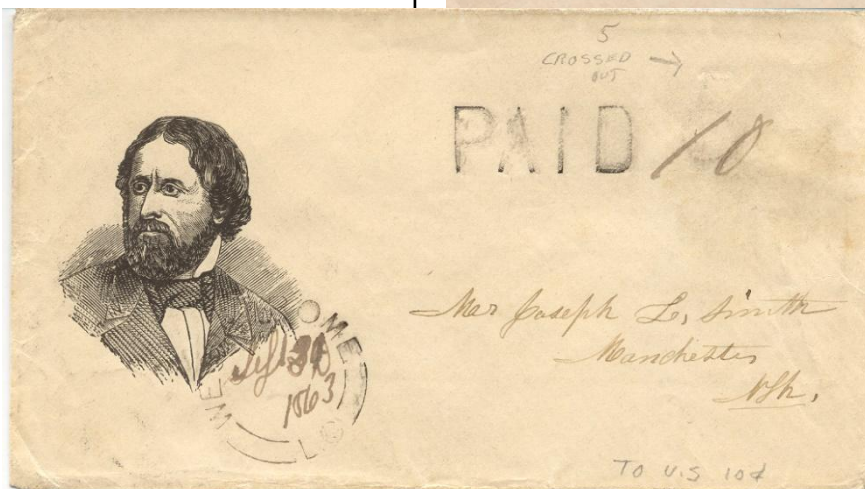 5
CROSSED →
OUT
PAID 10
Mrs Joseph L, Smith
Manchester
NH.
Sept
1863
TO U.S 10¢